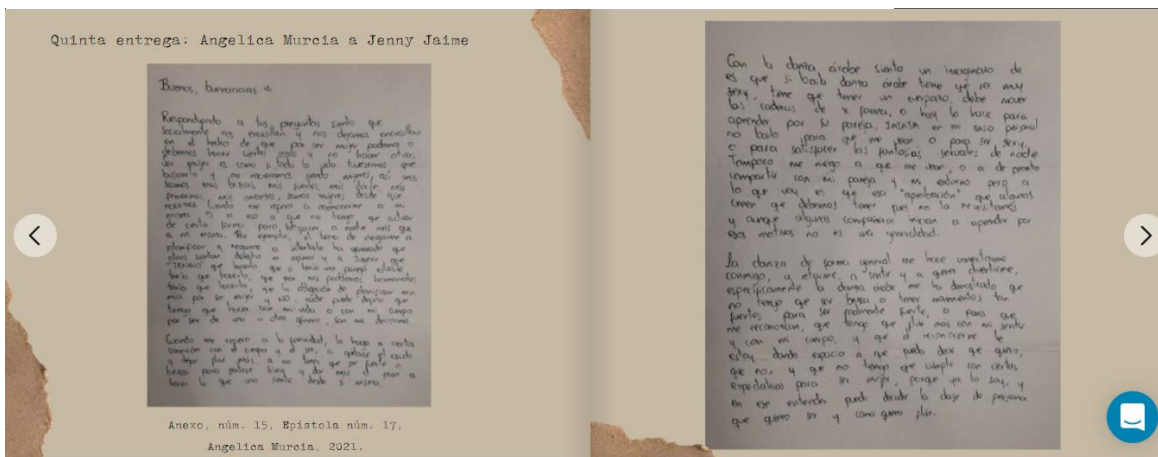 Quinta entrega: Angelica Murcia a Jenny Jaime
Buenos, buenaaaas
Respondiendo a tus preguntas siento que
socialmente nos encasillan y nos dejamos encasillar
en el hecho de que por ser mujer podemos o
debemos hacer ciertas cosas y no hacer otras.
Ser mujer es como si toda la vida tuviesemos que
buscarlo y no nacieramos siendo mujeres, así unas
seamos mas bruscas, mas fuertes, mas dociles, más
femeninas, mis amores, somos mujeres desde que
nacemos. Cuando me refiero a reconocerme a mi
misma es a eso a que no tengo que actuar
de cierta forma para a nadie más que
a mi misma. Por ejemplo, el tema de negarme a
planificar y negarme a ha generado que
otros sientan derecho a opinar y a
"TENGO" que hacerlo, que si tenia una pareja estable
tenía que hacerlo, que por mis problemas hormonales
tenía que hacerlo, que la obligación de planificar era
mía por ser mujer y NO, nadie puede decidir que
tengo que hacer con mi vida o con mi cuerpo
por ser de uno u otro género, son mis decisiones.
Cuando me refiero a la feminidad, lo hago a cierta
conexión con el cuerpo y el ser, a quitarse el escudo
y dejar fluir más, a no tener que ser fuerte o
brusca para pararse bien y dar más el paso a
hacer lo que uno siente desde si mismo.
Anexo, núm. 15, Epístola núm. 17,
Angelica Murcia, 2021.
Con la danza árabe siento un imaginario de
es que si baila danza árabe tiene que ser muy
sexy, tiene que tener un cuerpazo, debe mover
las caderas de x forma, o hay lo hace para
aprender por su pareja, en mi caso personal
no bailo para que me vean, o para ser sexy,
o para satisfacer las fantasias sexuales de nadie
Tampoco me niego a que me vean, o a de pronto
compartir con mi pareja y mi entorno pero a
lo que voy es que esa "aprobación" que algunos
creen que debemos tener pues no la necesitamos
y aunque algunas compañeras inician a aprender por
esos motivos no es una generalidad.
La danza de forma general me hace conectarme
conmigo, a elegirme, a sentir y a querer divertirme,
específicamente la danza árabe me ha demostrado que
no tengo que ser brusca o tener movimientos tan
fuertes para ser realmente fuerte, o para que
me reconozcan, que tengo que fluir mas con mi sentir
y con mi cuerpo, y que al reconocerme le
estoy dando espacio a que pueda decir que quiero,
que no, y que no tengo que cumplir con ciertas
expectativas para ser mujer, porque ya lo soy, y
en ese entender puedo decidir la clase de persona
que quiero ser y como quiero fluir.